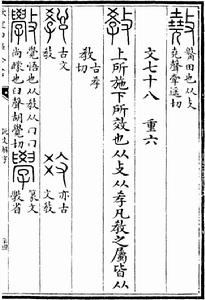 田也从攴
堯聲牽遙切
文七十八　重六
上所施下所效也从攴从𡥈凡教之屬皆从
教古孝
切
古文
教
亦古
文教
覺悟也从教从冂冂
尚矇也臼聲胡覺切
篆文
斆省
說文解字